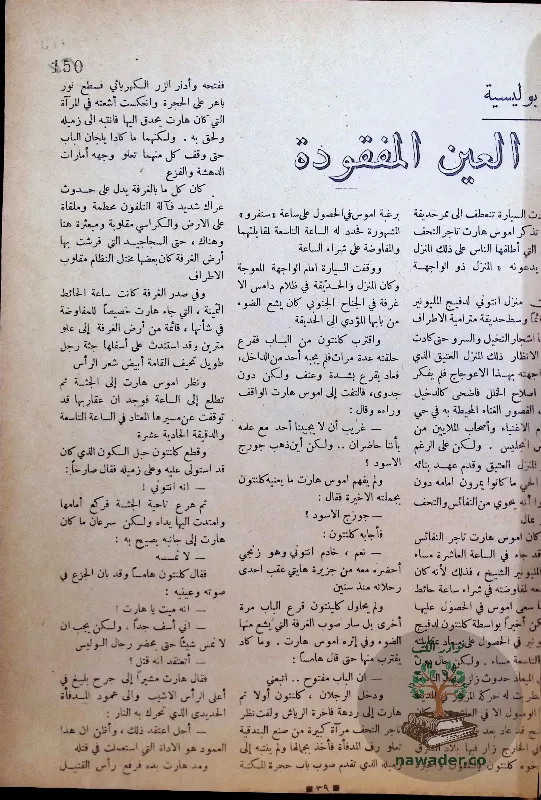 150
بوليسية
العين المفقودة
دت السيارة تنعطف الى ممر حديقة
تذكر اموس هارت تاجر التحف
التي أطلقها الناس على ذلك المنزل
يدعونه « المنزل ذو الواجهة
منزل انتوني لدفيج المليونير
وسط حديقة مترامية الاطراف
اشجار النخيل والسرو حتى كادت
الانظار ذلك المنزل العتيق الذي
واجهته بهذا الاعوجاج فلم يفكر
اصلاح الخلل فاضحى كالدخيل
القصور الغناء المحيطة به في حي
الاغنياء وأصحاب الملايين من
انجليس . ولكن على الرغم
المنزل العتيق وقدم عهد بنائه
الحي ما كانوا يمرون امامه دون
أنه يحوي من النفائس والتحف
بمال
كان اموس هارت تاجر النفائس
قد جاء في الساعة العاشرة مساء
المليونير الشيخ ، فذلك لأنه كان
معه لمفاوضته في شراء ساعة حائط
سعى اموس في الحصول عليها
أخيراً بواسطة كلنتون لدفيج
في الحصول على
التاسعة مساء . ولكن حال دون
الميعاد حدوث
له حركة
الوصول الا في
قد عاد بعد
في الخارج زار فيها بلاد
كلنتون
برغبة اموس في الحصول على ساعة « سنفرو »
المشهورة فحدد له الساعة التاسعة لمقابلتهما
والمفاوضة على شراء الساعة
ووقفت السيارة امام الواجهة المعوجة
وكان المنزل والحديقة في ظلام دامس الا
غرفة في الجناح الجنوبي كان يشع الضوء
من بابها المؤدي الى الحديقة
واقترب كلنتون من الباب فقرع
حلقته عدة مرات فلم يجبه أحد من الداخل،
فعاد يقرع بشدة وعنف ولكن دون
جدوى، فالتفت إلى اموس هارت الواقف
وراءه وقال :
— غريب أن لا يجيبنا أحد مع علمه
بأننا حاضران .. ولكن أين ذهب جورج
الاسود ؟
ولم يفهم اموس هارت ما يعنيه كلنتون
بجملته الاخيرة فقال :
— جورج الاسود ؟
فأجابه كلنتون :
— نعم ، خادم انتوني وهو زنجي
أحضره معه من جزيرة هايتي عقب احدى
رحلاته منذ سنين
ولم يحاول كلينتون قرع الباب مرة
أخرى بل سار صوب الغرفة التي يشع منها
الضوء وفي إثره اموس هارت . وما كاد
يقترب منها حتى قال هامساً :
— ان الباب مفتوح .. اتبعني
ودخل الرجلان ، كلنتون أولا ثم
هارت إلى ردهة فاخرة الرياش ولفت نظر
تاجر التحف مرآة كبيرة من صنع البندقية
تعلو رف المدفأة فأخذ بجمالها ولم ينتبه إلى
زميله الذي تقدم صوب باب حجرة المكتبة
ففتحه وأدار الزر الكهربائي فسطع نور
باهر على الحجرة وانعكست أشعته في المرآة
التي كان هارت يحدق اليها فانتبه الى زميله
ولحق به . ولكنهما ما كادا يلجان الباب
حتى وقف كل منهما تعلو وجهه أمارات
الدهشة والفزع
كان كل ما بالغرفة يدل على حدوث
عراك شديد فآلة التلفون محطمة وملقاة
على الارض والكراسي مقلوبة ومبعثرة هنا
وهناك ، حتى السجاجيد التي فرشت بها
أرض الغرفة كان بعضها مختل النظام مقلوب
الاطراف
وفي صدر الغرفة كانت ساعة الحائط
الثمينة ، التي جاء هارت خصيصاً للمفاوضة
في شأنها ، قائمة من أرض الغرفة إلى علو
مترين وقد استندت على أسفلها جثة رجل
طويل نحيف القامة أبيض شعر الرأس
ونظر اموس هارت إلى الجثة ثم
تطلع إلى الساعة فوجد ان عقاربها قد
توقفت عن سيرها المعتاد في الساعة التاسعة
والدقيقة الحادية عشرة
وقطع كلنتون حبل السكون الذي كان
قد استولى عليه وعلى زميله فقال صارخاً :
— انه انتوني !
ثم هرع ناحية الجثة فركع أمامها
وامتدت اليها يداه ولكن سرعان ما كان
هارت إلى جانبه يصيح به :
— لا تمسه
فقال كلنتون هامساً وقد بان الجزع في
صوته وعينيه :
— انه ميت يا هارت !
— اني أسف جداً . ولكن يجب ان
لا تمس شيئاً حتى يحضر رجال البوليس
— أتعتقد انه قتل ؟
فقال هارت مشيراً إلى جرح بليغ في
أعلى الرأس الاشيب والى عمود المدفأة
الحديدي الذي تحرك به النار :
— أجل اعتقد ذلك ، وأظن ان هذا
العمود هو الاداة التي استعملت في قتله
ومد هارت يده فرفع رأس القتيل
٣٩
نوادر الكتب
nawader.co